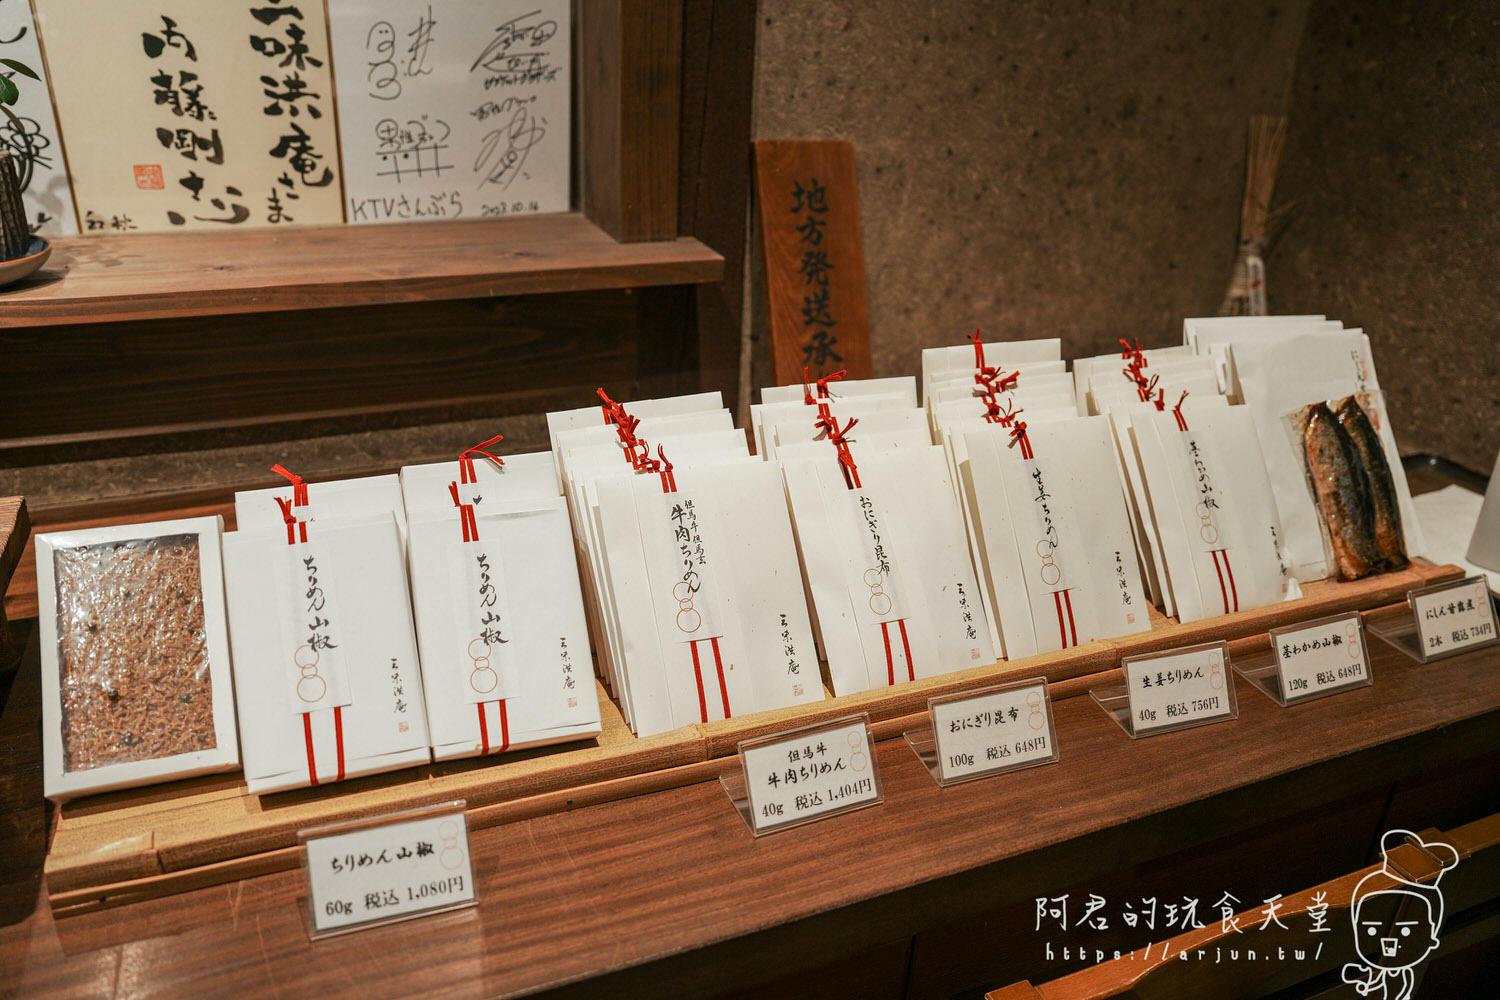 三味洪庵さま
内藤剛志
KTVさんぶら
2023.10.16
地方発送承
ちりめん山椒
三味洪庵
ちりめん山椒
三味洪庵
但馬牛但馬玄
牛肉ちりめん
三味洪庵
おにぎり昆布
三味洪庵
生姜ちりめん
三味洪庵
茎わかめ山椒
三味洪庵
にしん
ちりめん山椒
60g 税込 1,080円
但馬牛
牛肉ちりめん
40g 税込 1,404円
おにぎり昆布
100g 税込 648円
生姜ちりめん
40g 税込 756円
茎わかめ山椒
120g 税込 648円
にしん甘露煮
2本 税込 734円
阿君的玩食天堂
https://arjun.tw/